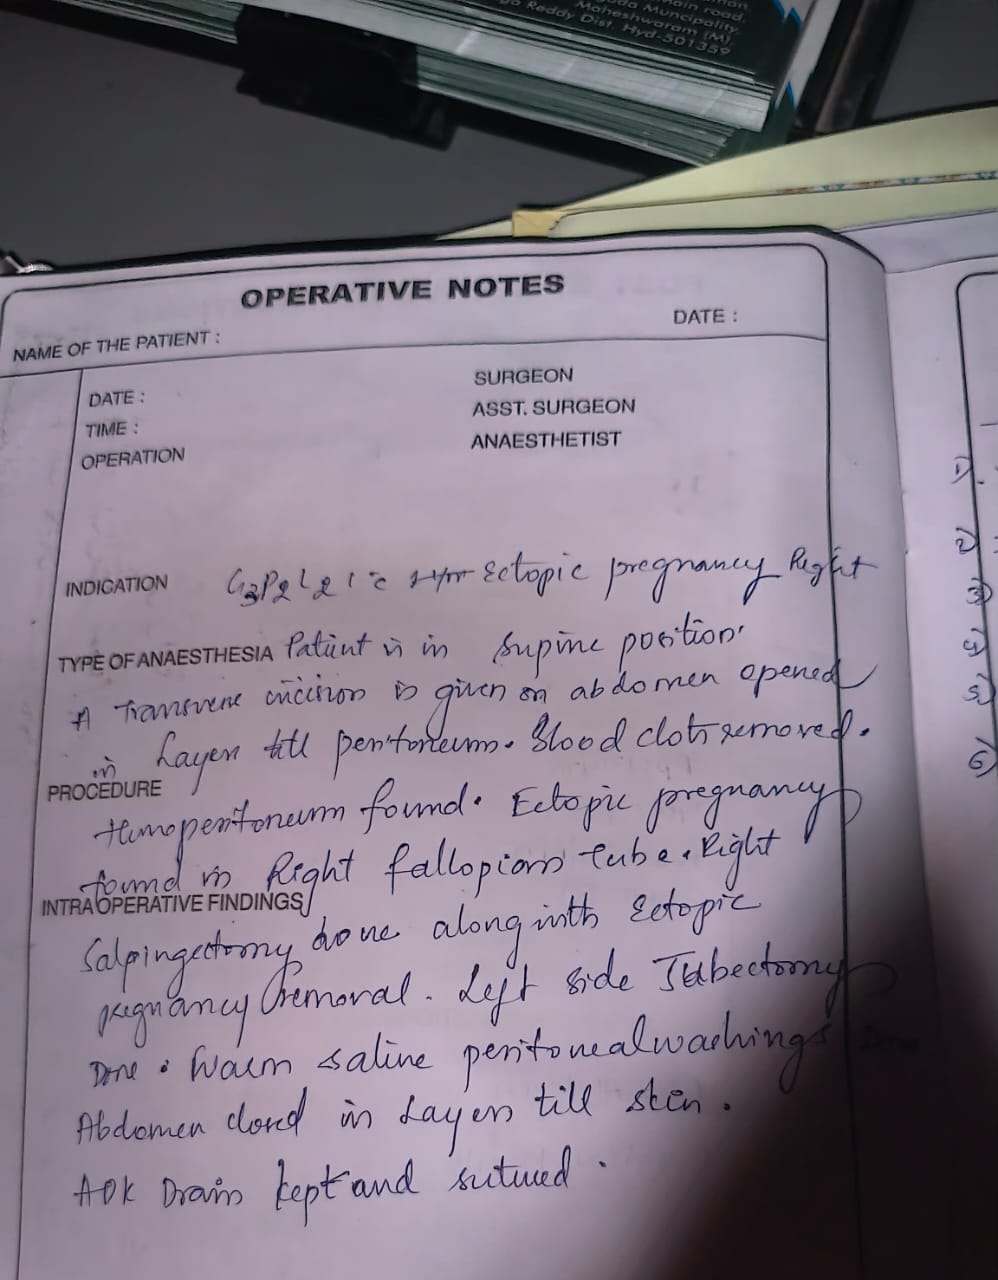 main road
Municipality
Maheshwaram (M)
Reddy Dist. Hyd-501359
OPERATIVE NOTES
DATE :
NAME OF THE PATIENT :
DATE :
SURGEON
TIME :
ASST. SURGEON
OPERATION
ANAESTHETIST
INDICATION G3P2L2 c Ectopic pregnancy Right
TYPE OF ANAESTHESIA Patient is in supine position.
A Transverse incision is given on abdomen opened
in Layers till peritoneum. Blood clots removed.
PROCEDURE
Hemoperitoneum found. Ectopic pregnancy
found in Right fallopian tube. Right
INTRAOPERATIVE FINDINGS
Salpingectomy done along with Ectopic
pregnancy removal. Left side Tubectomy
Done. Warm saline peritoneal washings Done
Abdomen closed in Layers till skin.
ADK Drain kept and sutured.
1)
2)
3)
4)
5)
6)